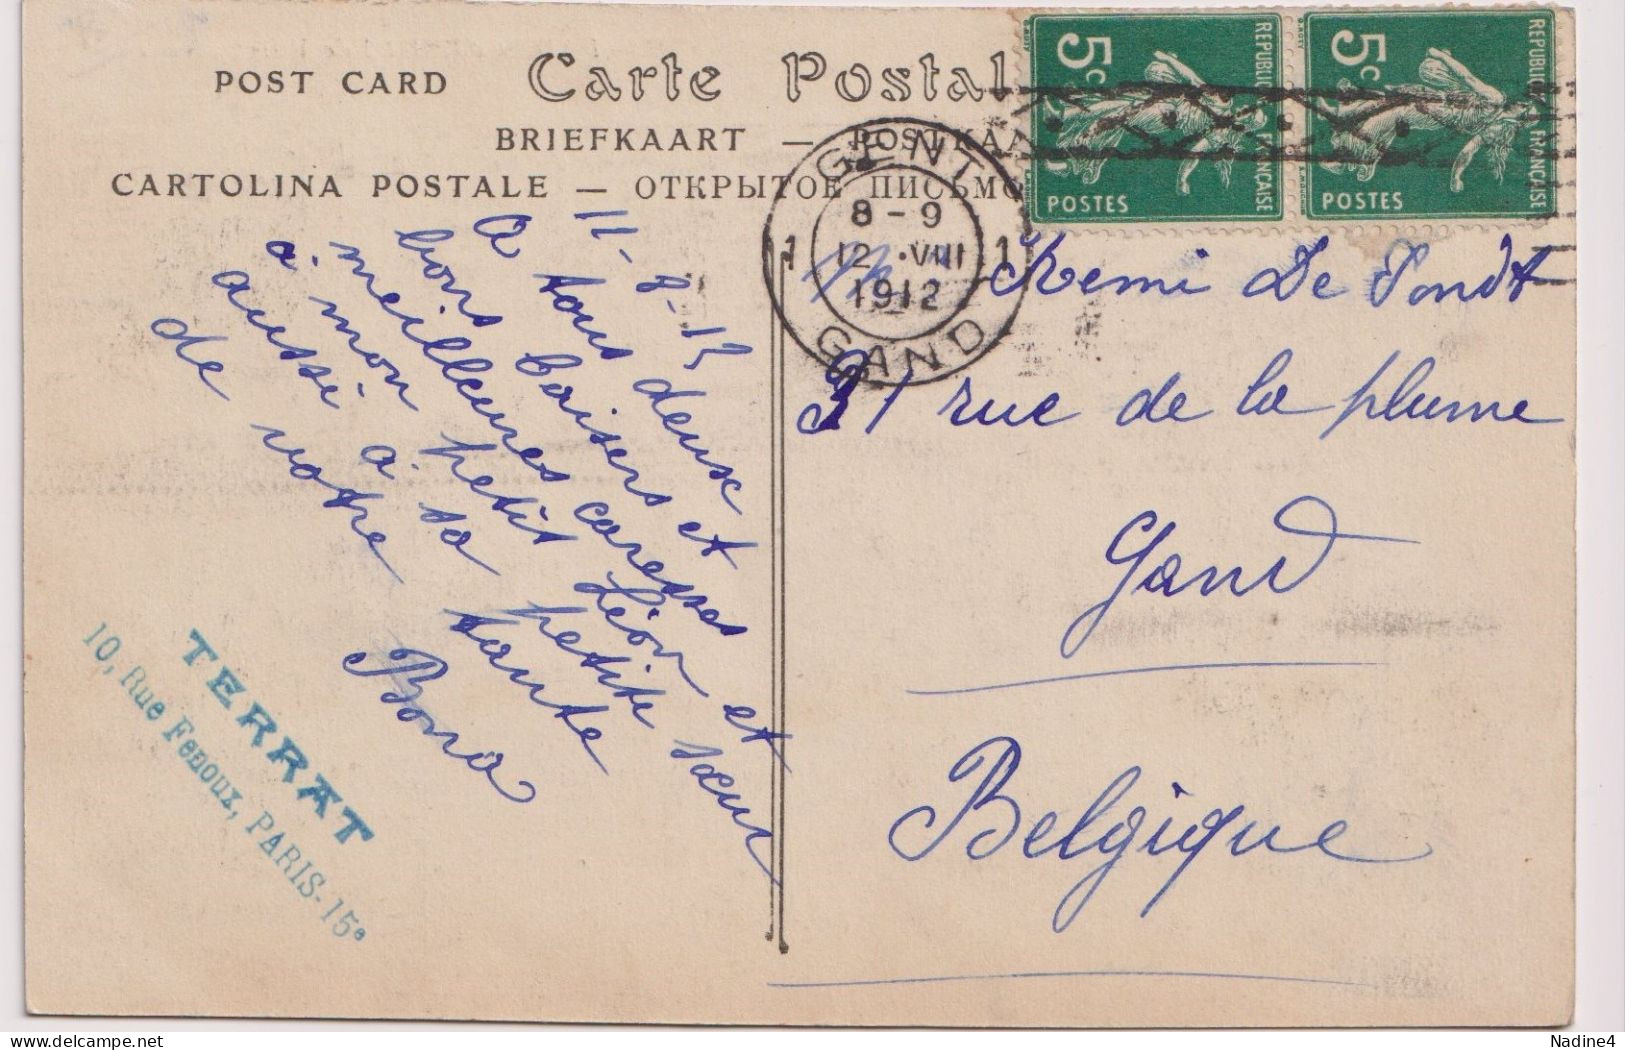 POST CARD Carte Postal
BRIEFKAART — POSTKAA
CARTOLINA POSTALE — ОТКРЫТОЕ ПИСЬМО
5c
REPUBLIQUE FRANCAISE
POSTES
5c
REPUBLIQUE FRANCAISE
POSTES
GENT
8-9
1 12 · VIII 1
1912
GAND
11-8-12
A tous deux
bons baisers et
meilleures caresses
a mon petit Léon et
aussi a sa petite sœur
de votre tante
Bona
Remi De Pondt
31 rue de la plume
Gand
Belgique
TERRAT
10, Rue Fenoux, PARIS-15e
delcampe.net
Nadine4